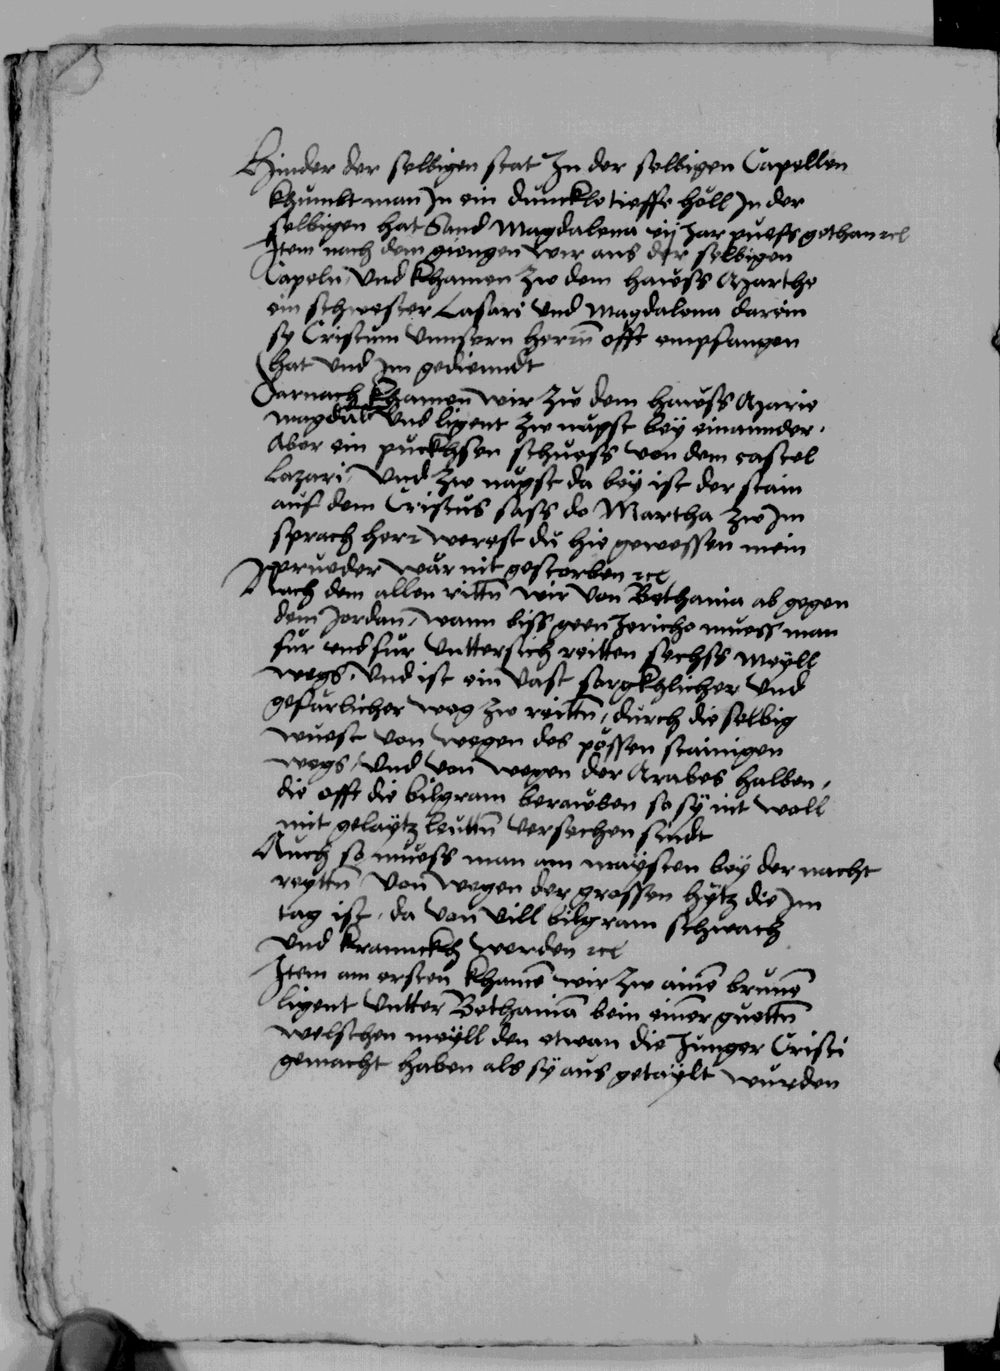 Hinder der selbigen stat In der selbigen Capellen
khumbt man In ein dunckle tieffe höll In der
selbigen hat Sand Magdalena vij Jar puess gethan ꝛcͭ
Item nach dem giengen wir aus der selbigen
Capeln und khamen zw dem hauss Marthe
ein schwester Lasari und Magdalena darein
sy Cristum unnsern herrn̄ offt empfangen
hat und Im gedienndt
Darnach khamen wir zw dem hauss Marie
magdal̄ und ligent zw nagst bey einannder.
Aber ein puckhsen schuess von dem castel
Lazari, und zw nagst da bey ist der stain
auf dem Cristus sass do Martha zw Im
sprach herr werest du hie gewessen mein
prueder wär nit gestorben ꝛcͭ
Nach dem allen rittn̄ wir von Bethania ab gegen
dem Jordan, wann biss geen Jericho muess man
für und für unttersich reitten sechss meyll
wegs, und ist ein vast sorgkhlicher und
gefärlicher weg zw reittn̄, durch die selbig
wuest von wegen des pössen stainigen
wegs, und von wegen der Arabes halben,
die offt die bilgram berauben so sÿ nit woll
mit gelaytz leuttn̄ versechen sindt
Auch so muess man am maysten bey der nacht
reyttn̄ von wegen der grossen hytz die Im
tag ist, da von vill bilgram schwach
und kranckh werden ꝛcͭ
Item am ersten khamē wir zw ainē brunē
ligent untter Bethaniā bein einer guettn̄
welschen meyll den etwan die Junger Cristi
gemacht haben als sÿ aus getaÿlt wurden